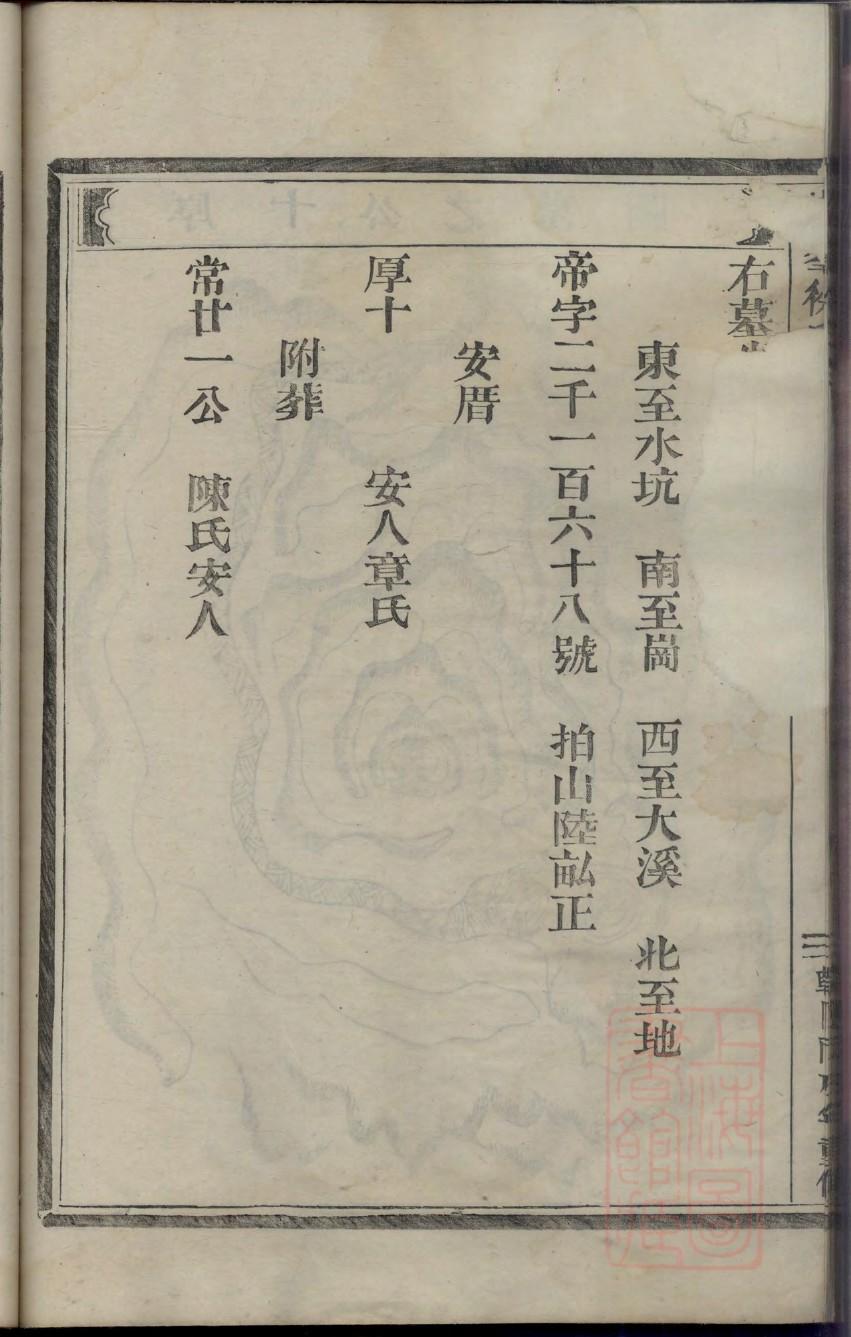 右墓
東至水坑　南至崗　西至大溪　北至地
帝字二千一百六十八號　拍山陸畝正
安厝
厚十　安人章氏
附葬
常廿一公　陳氏安人
三
上海圖書館藏